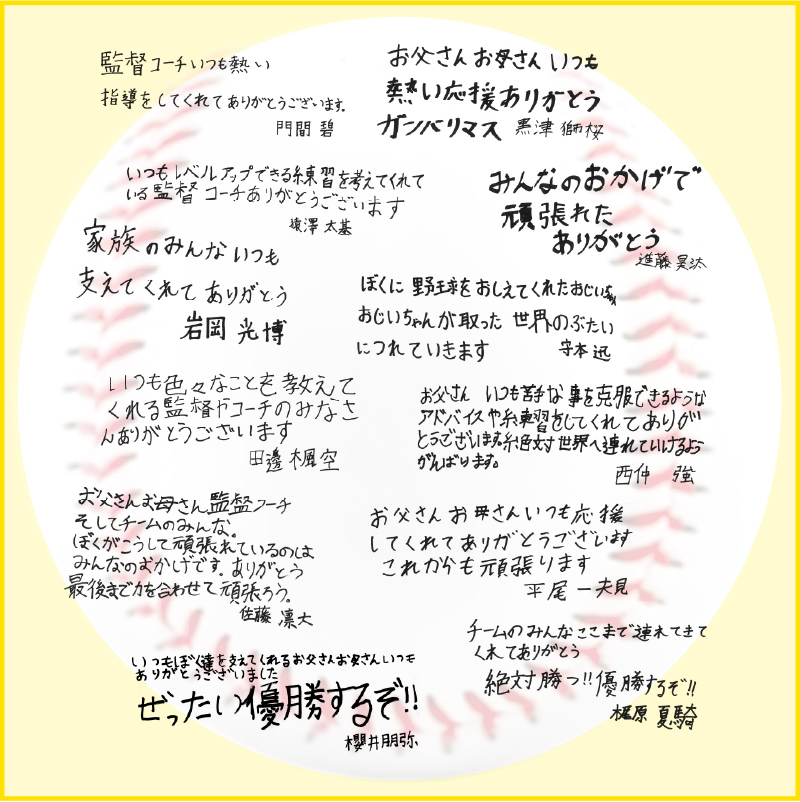 監督コーチいつも熱い
指導をしてくれてありがとうございます。
門間 碧
お父さんお母さんいつも
熱い応援ありがとう
ガンバリマス 黒津 獅桜
いつもレベルアップできる練習を考えてくれて
いる監督 コーチありがとうございます
遠澤 太基
みんなのおかげで
頑張れた
ありがとう
進藤 昊汰
家族のみんないつも
支えてくれてありがとう
岩岡 光博
ぼくに野球をおしえてくれたおじいちゃん
おじいちゃんが取った世界のぶたい
につれていきます 守本 迅
いつも色々なことを教えて
くれる監督やコーチのみなさ
んありがとうございます
田邊 楓空
お父さん いつも苦手な事を克服できるような
アドバイスや練習をしてくれてありが
とうございます。絶対世界へ連れていけるよう
がんばります。
西仲 強
お父さんお母さん監督コーチ
そしてチームのみんな。
ぼくがこうして頑張れているのは
みんなのおかげです。ありがとう
最後まで力を合わせて頑張ろう。
佐藤 凛大
お父さんお母さんいつも応援
してくれてありがとうございます
これからも頑張ります
平尾 一夫見
チームのみんなここまで連れてきて
くれてありがとう
絶対勝つ!!優勝するぞ!!
梶原 夏騎
いつもぼく達を支えてくれるお父さんお母さんいつも
ありがとうございました
ぜったい優勝するぞ!!
櫻井朋弥